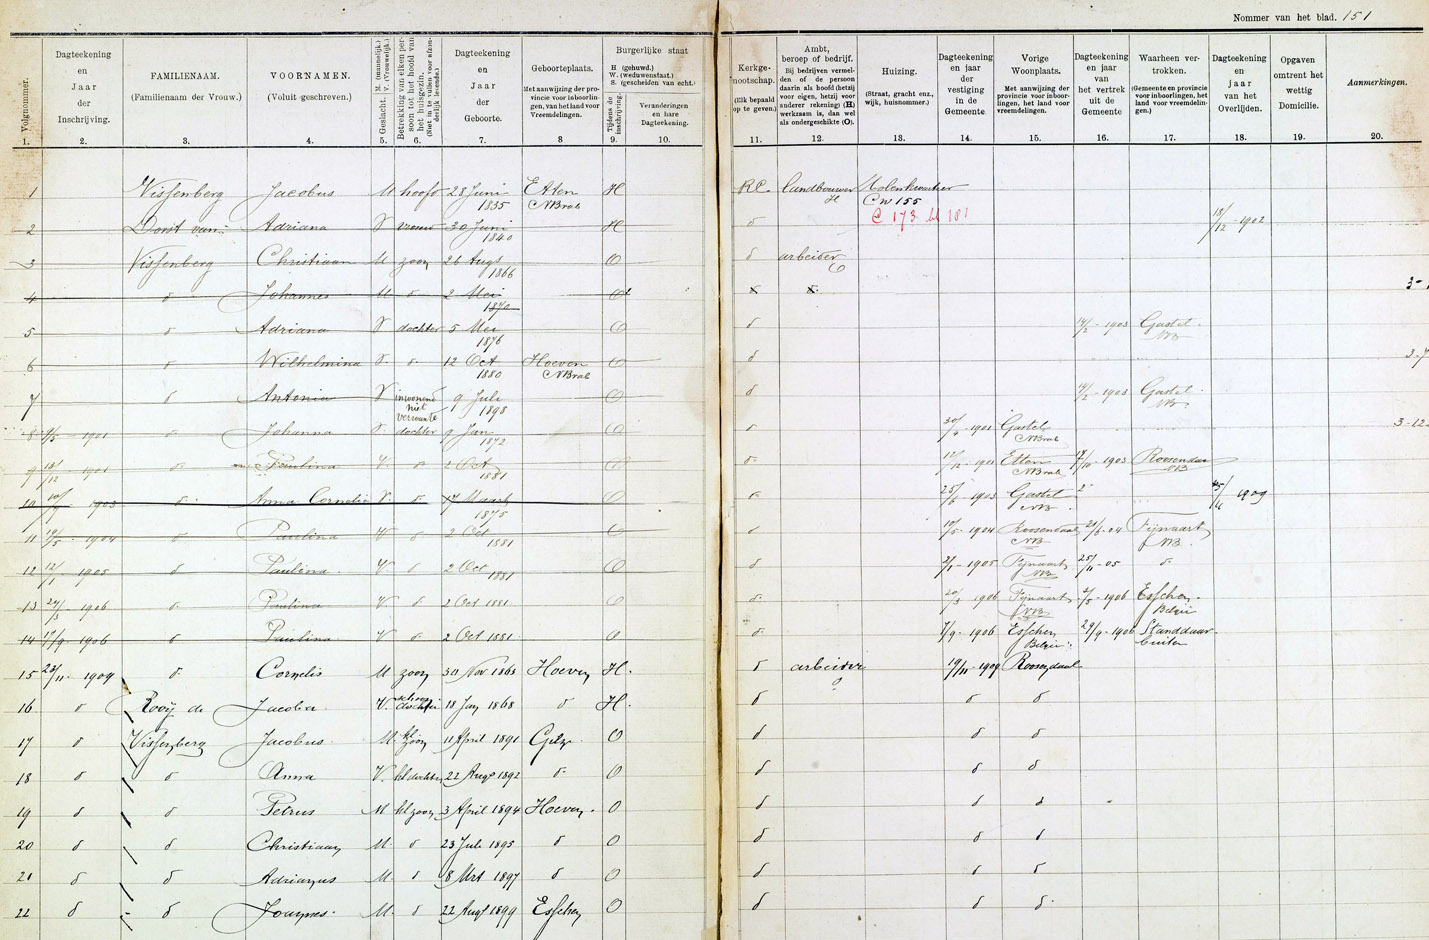 Nommer van het blad. 151
Volgnommer.
1.
Dagteekening
en
Jaar
der
Inschrijving.
2.
FAMILIENAAM.
(Familienaam der Vrouw.)
3.
VOORNAMEN.
(Voluit geschreven.)
4.
Geslacht.
M. (mannelijk.)
V. (Vrouwelijk.)
5.
Betrekking van elken per-
soon tot het hoofd van
het huisgezin.
(Niet in te vullen voor afzon-
derlijk levende.)
6.
Dagteekening
en
Jaar
der
Geboorte.
7.
Geboorteplaats.
Met aanwijzing der pro-
vincie voor inboorlin-
gen, van het land voor
Vreemdelingen.
8
Burgerlijke staat
H (gehuwd.)
W. (weduwenstaat.)
S. (gescheiden van echt.)
Tijdens de
inschrijving.
9.
Veranderingen
en hare
Dagteekening.
10.
Kerkge-
nootschap.
(Elk bepaald
op te geven.)
11.
Ambt,
beroep of bedrijf.
Bij bedrijven vermel-
den of de persoon
daarin als hoofd (hetzij
voor eigen, hetzij voor
anderer rekening) (H)
werkzaam is, dan wel
als ondergeschikte (O).
12.
Huizing.
(Straat, gracht enz.,
wijk, huisnommer.)
13.
Dagteekening
en jaar
der
vestiging
in de
Gemeente.
14.
Vorige
Woonplaats.
(Met aanwijzing der
provincie voor inboor-
lingen, het land voor
vreemdelingen.
15.
Dagteekening
en jaar
van
het vertrek
uit de
Gemeente
16.
Waarheen ver-
trokken.
(Gemeente en provincie
voor inboorlingen, het
land voor vreemdelin-
gen.)
17.
Dagteekening
en
jaar
van het
Overlijden.
18.
Opgaven
omtrent het
wettig
Domicilie.
19.
Aanmerkingen.
20.
1 Vissenberg Jacobus M hoofd 28 Juni 1835 Etten NBrab H RC. landbouwer H Molenkwartier C w 155
C 173 bl 181
2 Dorst van Adriana V vrouw 30 Juni 1840 H d 18/12 1902
3 Vissenberg Christiaan M zoon 26 Augs 1866 O d arbeider O
4 d Johannes M d 2 Mei 1870 O
5 d Adriana V dochter 5 Mei 1876 O d 14/2 - 1903 Gastel NB
6 d Wilhelmina V d 12 Oct 1880 Hoeven NBrab O d
7 d Antonia V inwonend niet verwante 9 Juli 1898 O d 14/2 - 1903 Gastel NB
8 1901 d Johanna V dochter 9 Jan 1872 O d 1901 Gastel NBrab
9 1901 d Paulina V d 2 Oct 1881 O d 1901 Etten NBrab 1903 Roosendaal NB
10 1903 d Anna Cornelia V d 17 Maart 1875 O d 25/6 1903 Gastel NB 1909
11 19/5 - 1904 d Paulina V d 2 Oct 1881 O d 19/5 - 1904 Roosendaal NB 04 Fijnaart NB
12 12/1 1905 d Paulina V d 2 Oct 1881 O d 1905 Fijnaart NB 05 d
13 24/3 1906 d Paulina V d 2 Oct 1881 O d 1906 Fijnaart NB 1906 Esschen België
14 17/9 1906 d Paulina V d 2 Oct 1881 O d 1906 Esschen België 29/9 - 1906 Standdaar- buiten
15 23/11 - 1909 d Cornelis M zoon 30 Nov 1863 Hoeven H. d arbeider O 19/11 - 1909 Roosendaal
16 d Rooij de Jacoba V. schoon dochter 18 Jan 1868 d H. d d d
17 d Vissenberg Jacobus M. kl zoon 11 April 1891 Gilze O d d d
18 d d Anna V. kl dochter 22 Augs 1892 d O d d d
19 d d Petrus M kl zoon 3 April 1894 Hoeven O d d d
20 d d Christiaan M. d 23 Juli 1895 d O d d d
21 d d Adrianus M. d 8 Mrt 1897 d O d d d
22 d d Joannes M. d 22 Augt 1899 Esschen O d d d